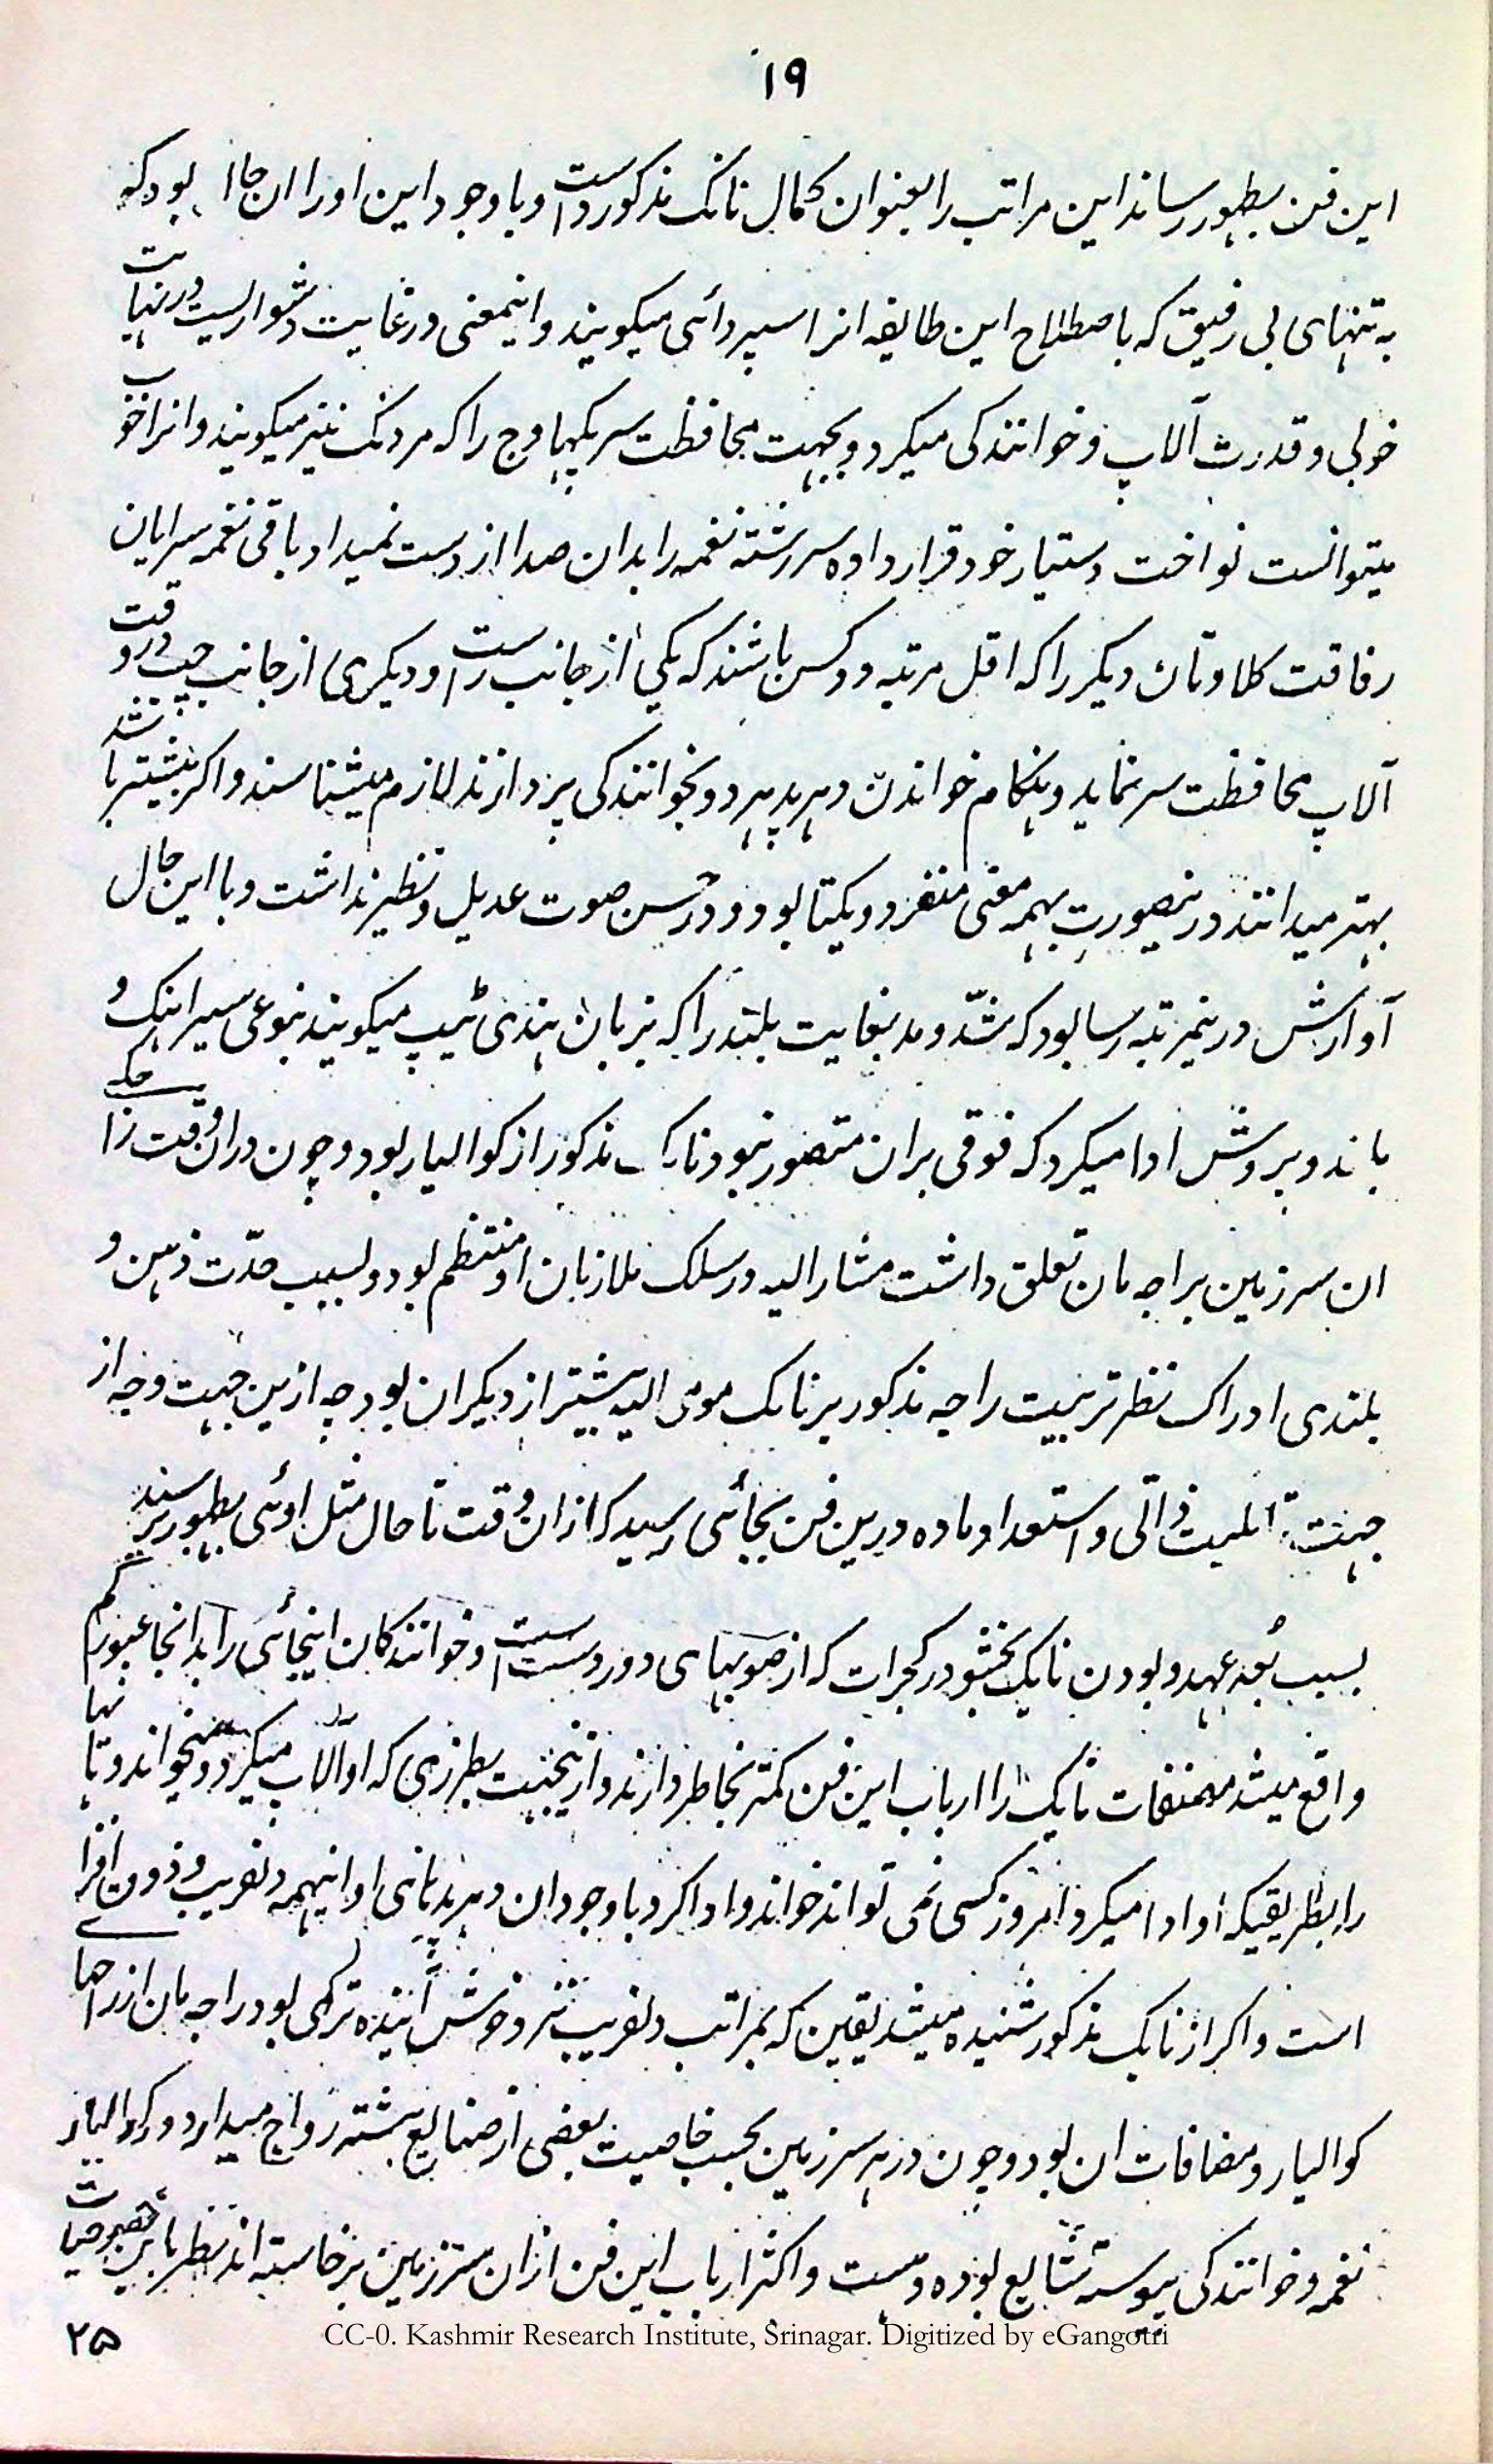 ۱۹
این فن بظهور رساند این مراتب را بعنوان کمال نانک مذکور داست و با وجود این او را ان جا بود که
به تنهای بی رفیق که باصطلاح این طایفه انرا سپردائی میکویند و اینمعنی در غایت دشواریست در نهایت
خوبی و قدرت آلاپ و خوانندکی میکرد و بجهت محافظت سر پکهاوج را که مردنک نیز میکویند و انرا خوب
میتوانست نواخت دستیار خود قرار داده سر رشته نغمه را بدان صدا از دست نمیداد باقی نغمه سرایان
رفاقت کلاوتان دیکر را که اقل مرتبه دو کس باشند که یکی از جانب راست و دیکری از جانب چپ در وقت
آلاپ محافظت سر نماید و هنکام خواندن دهرپد هر دو بخوانندکی پردازند لازم میشناسند و اکر بیشتر باشد
بهتر میدانند درینصورت بهمه معنی منفرد و یکتا بود و در حسن صوت عدیل و نظیر نداشت و با این حال
آوازش درینمرتبه رسا بود که شدّ و مد بغایت بلند را که بزبان هندی ٹیپ میکویند بنوعی سیر اهنک و
بامزه و پروش ادا میکرد که فوقی بران متصور نبود نایک مذکور از کوالیار بود و چون دران وقت زا حکه
ان سرزمین براجه مان تعلق داشت مشار الیه در سلک ملازمان او منتظم بود و لسبب حدّت ذهن و
بلندی ادراک نظر تربیت راجه مذکور بر نایک مومی الیه بیشتر از دیکران بود چه ازین جهت و چه از
جهت قابلیت ذاتی و استعداد ماده درین فن بجائی رسید که ازان وقت تا حال مثل اوئی بظهور نرسید
بسبب بُعد عهد و بودن نایک بخشو در کجرات که از صوبهای دور دست است و خوانندکان اینجائی را بدانجا عبور کم
واقع میشد مصنفات نایک را ارباب این فن کمتر بخاطر دارند و ازینجهت بطرزی که او آلاپ میکرد و میخواند و تانها
را بطریقیکه او ادا میکرد امروز کسی نمی تواند خواند و ادا کرد با وجود ان دهرپدهای او اینهمه دلفریب و ذوق افزای
است و اکر از نایک مذکور شنیده میشد یقین که بمراتب دلفریب تر و خوش آینده تر می بود راجه مان از راجهای
کوالیار و مضافات ان بود و چون در هر سرزمین بحسب خاصیت بعضی از صنایع بیشتر رواج میدارد در کوالیار
نغمه و خوانندکی پیوسته شایع بوده و هست و اکثر ارباب این فن ازان سرزمین برخاسته اند نظر باین خصوصیات
۲۵
CC-0. Kashmir Research Institute, Srinagar. Digitized by eGangotri